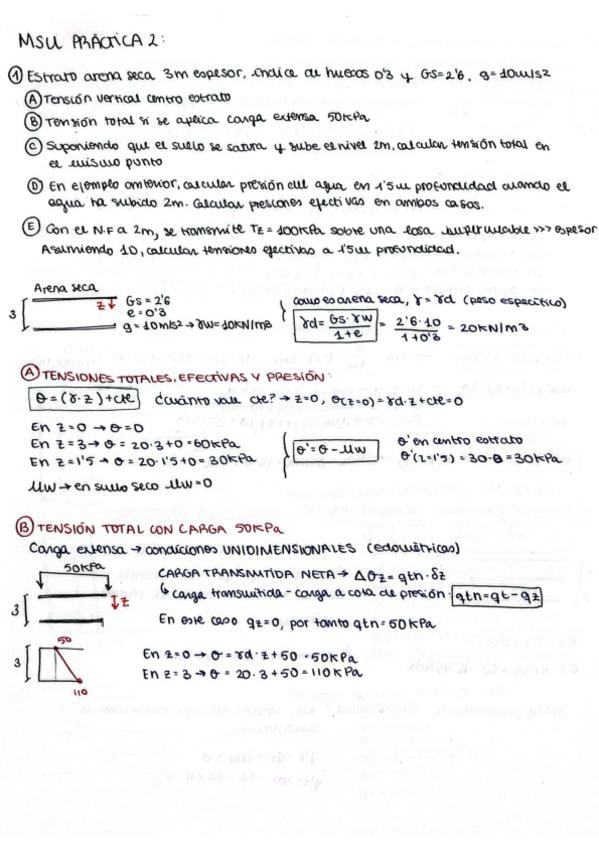 MSU PRÁCTICA 2:
① Estrato arena seca 3m espesor, índice de huecos 0'3 y GS=2'6. g=10m/s2
Ⓐ Tensión vertical centro estrato
Ⓑ Tensión total si se aplica carga extensa 50KPa
Ⓒ Suponiendo que el suelo se satura y sube el nivel 2m, calcular tensión total en
el mismo punto
Ⓓ En ejemplo anterior, calcular presión del agua en 1'5m profundidad cuando el
agua ha subido 2m. Calcular presiones efectivas en ambos casos.
Ⓔ Con el N.F a 2m, se transmite Tz=100KPa sobre una losa impermeable >>> espesor
Asumiendo 1D, calcular tensiones efectivas a 1'5m profundidad.
Arena seca
3
z↓
Gs = 2'6
e = 0'3
g = 10m/s2 → γw=10KN/m3
como es arena seca, γ = γd (peso específico)
γd = Gs·γw / 1+e = 2'6·10 / 1+0'3 = 20KN/m3
Ⓐ TENSIONES TOTALES, EFECTIVAS Y PRESIÓN:
σ = (γ·z) + cte
¿cuánto vale cte? → z=0, σ(z=0) = γd·z + cte = 0
En z=0 → σ=0
En z=3 → σ = 20·3+0 = 60KPa
En z=1'5 → σ = 20·1'5+0 = 30KPa
σ' = σ - Uw
σ' en centro estrato
σ'(z=1'5) = 30-0 = 30KPa
Uw → en suelo seco Uw=0
Ⓑ TENSIÓN TOTAL CON CARGA 50KPa
Carga extensa → condiciones UNIDIMENSIONALES (edométricas)
50KPa
3
↕z
CARGA TRANSMITIDA NETA → Δσz = qtn·δz
↳ carga transmitida - carga a cota de presión: qtn=qt-qz
En este caso qz=0, por tanto qtn=50KPa
3
50
110
En z=0 → σ = γd·z+50 = 50KPa
En z=3 → σ = 20·3+50 = 110KPa